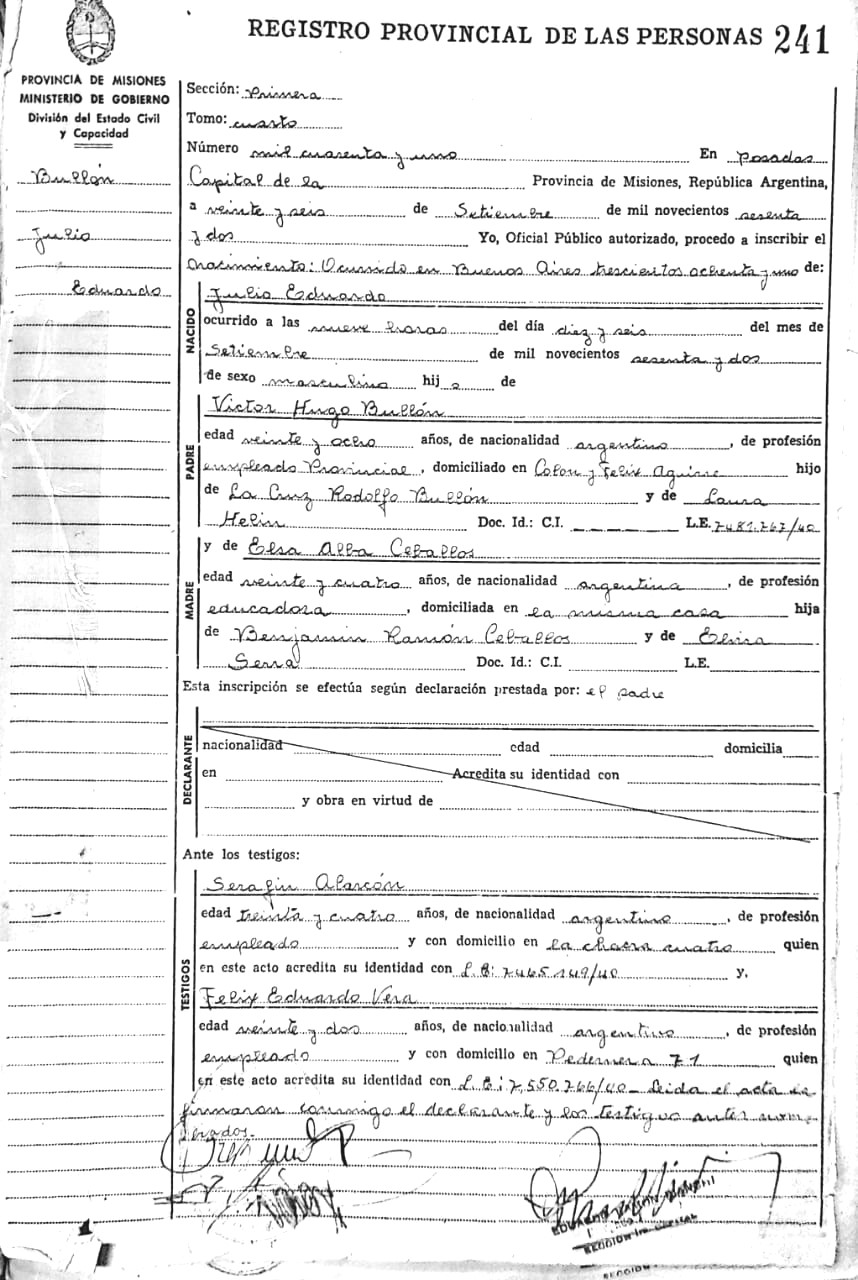 REGISTRO PROVINCIAL DE LAS PERSONAS 241
PROVINCIA DE MISIONES
MINISTERIO DE GOBIERNO
División del Estado Civil
y Capacidad
Bullón
Julio
Eduardo
Sección: Primera
Tomo: cuarto
Número mil cuarenta y uno En Posadas
Capital de la Provincia de Misiones, República Argentina,
a veinte y seis de Setiembre de mil novecientos sesenta
y dos Yo, Oficial Público autorizado, procedo a inscribir el
nacimiento: Ocurrido en Buenos Aires trescientos ochenta y uno de:
NACIDO
Julio Eduardo
ocurrido a las nueve horas del día diez y seis del mes de
Setiembre de mil novecientos sesenta y dos
de sexo masculino hijo de
PADRE
Victor Hugo Bullón
edad veinte y ocho años, de nacionalidad argentino, de profesión
empleado Provincial, domiciliado en Colon y Felix Aguirre hijo
de La Cruz Rodolfo Bullón y de Laura
Helin Doc. Id.: C.I. L.E. 7481.767/40
MADRE
y de Elsa Alba Ceballos
edad veinte y cuatro años, de nacionalidad argentina, de profesión
educadora, domiciliada en la misma casa hija
de Benjamin Ramón Ceballos y de Elvira
Serra Doc. Id.: C.I. L.E.
Esta inscripción se efectúa según declaración prestada por: el padre
DECLARANTE
nacionalidad edad domicilia
en Acredita su identidad con
y obra en virtud de
Ante los testigos:
TESTIGOS
Serafin Alarcón
edad treinta y cuatro años, de nacionalidad argentino, de profesión
empleado y con domicilio en la chacra cuatro quien
en este acto acredita su identidad con L.E: 7465149/40 y,
Felix Eduardo Vera
edad veinte y dos años, de nacionalidad argentino, de profesión
empleado y con domicilio en Pedernera 71 quien
en este acto acredita su identidad con L.E: 7,550.766/40 - Leida el acta la
firmaron conmigo el declarante y los testigos antes nom-
brados.